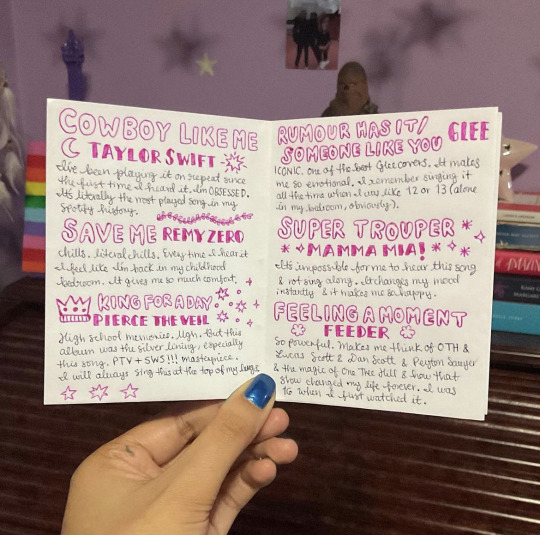 COWBOY LIKE ME
TAYLOR SWIFT
I've been playing it on repeat since
the first time I heard it. I'm OBSESSED.
It's literally the most played song in my
Spotify history.
SAVE ME REMY ZERO
Chills. Literal chills. Every time I hear it
I feel like I'm back in my childhood
bedroom. It gives me so much comfort.
KING FOR A DAY
PIERCE THE VEIL
High school memories. Ugh. But this
album was the silver lining, especially
this song. PTV + SWS!!! masterpiece.
I will always sing this at the top of my lungs
RUMOUR HAS IT/
SOMEONE LIKE YOU GLEE
ICONIC. one of the best Glee covers. It makes
me so emotional. I remember singing it
all the time when I was like 12 or 13 (alone
in my bedroom, obviously).
SUPER TROUPER
MAMMA MIA!
It's impossible for me to hear this song
& not sing along. It changes my mood
instantly & it makes me so happy.
FEELING A MOMENT
FEEDER
So powerful. Makes me think of OTH &
Lucas Scott & Dan Scott & Peyton Sawyer
& the magic of One Tree Hill & how that
show changed my life forever. I was
16 when I first watched it.